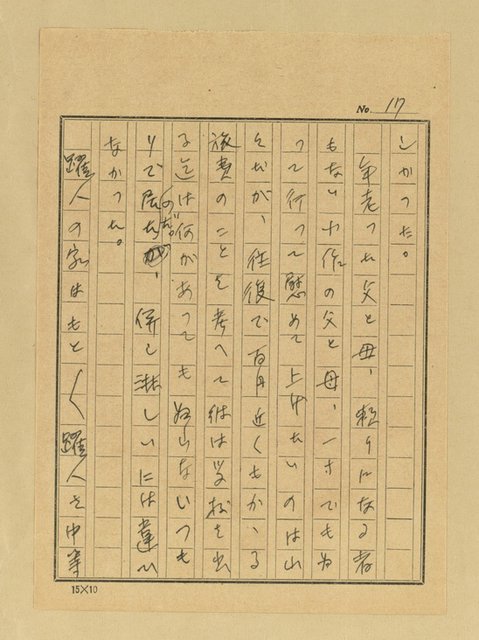 No. 17
しかつた。
年老つた父と母、頼りになる者
もない小作の父と母、一寸でも会
つて行つて慰めて上げたいのは山
々だが、往復で百円近くもかゝる
旅費のことを考へて彼は学校を出
る迄は何があつても帰らないつも
りで居たのだ。併し淋しいには違ひ
なかつた。
躍人の家はもと〱躍人を中等
15×10